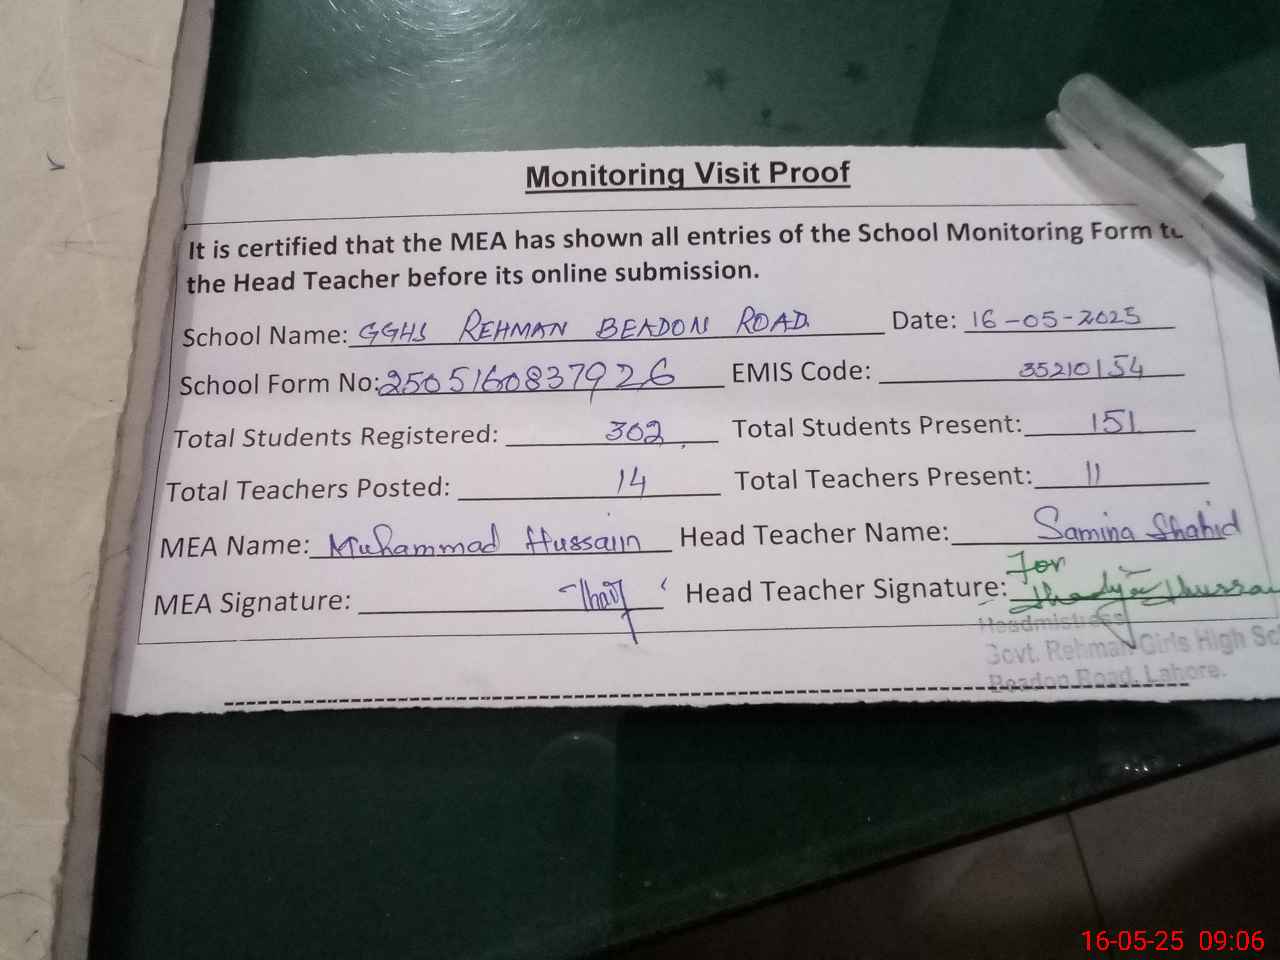 Monitoring Visit Proof
It is certified that the MEA has shown all entries of the School Monitoring Form to
the Head Teacher before its online submission.
School Name: GGHS REHMAN BEADON ROAD Date: 16-05-2025
School Form No: 2505160837926 EMIS Code: 35210154
Total Students Registered: 302 Total Students Present: 151
Total Teachers Posted: 14 Total Teachers Present: 11
MEA Name: Muhammad Hussain Head Teacher Name: Samina Shahid
MEA Signature: Head Teacher Signature: For
Headmistress
Govt. Rehman Girls High Sc
Beadon Road, Lahore.
16-05-25 09:06